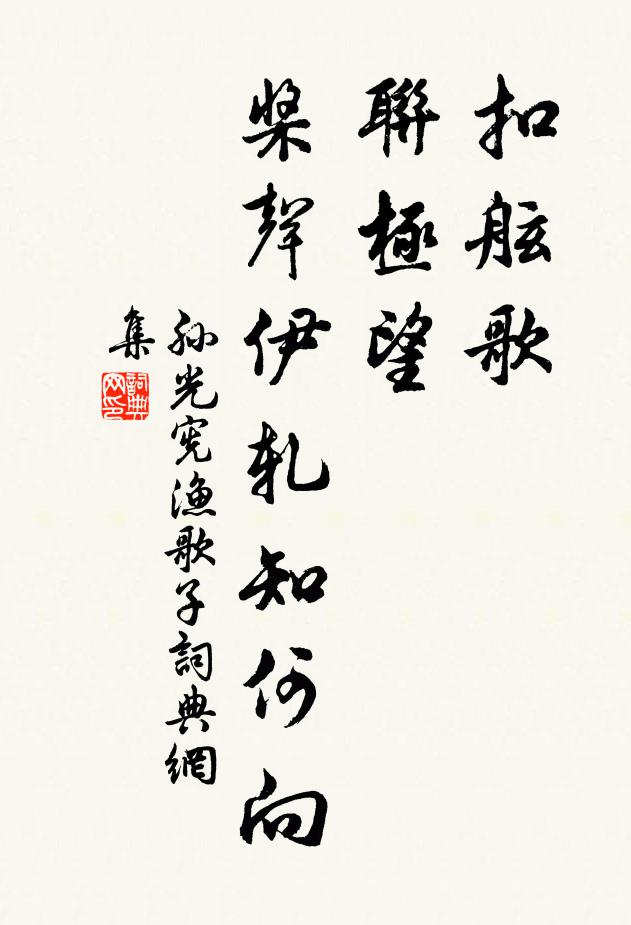 扣舷歌
聯極望
槳聲伊軋知何向
孫光宪漁歌子詞典網
集
詞典
网印